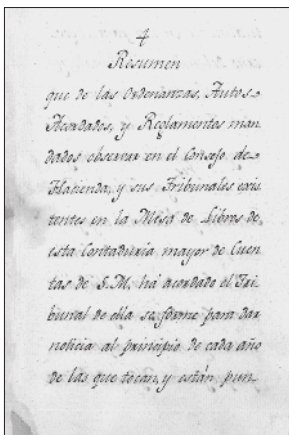 4
Resumen
que de las Ordenanzas, Autos
Acordados, y Reglamentos man
dados observar en el Consejo de
Hacienda, y sus Tribunales exis
tentes en la Mesa de Libros de
esta Contaduria mayor de Cuen
tas de S.M. há acordado el Tri
bunal de ella se forme para dar
noticia al principio de cada año
de las que tocan, y están pun-